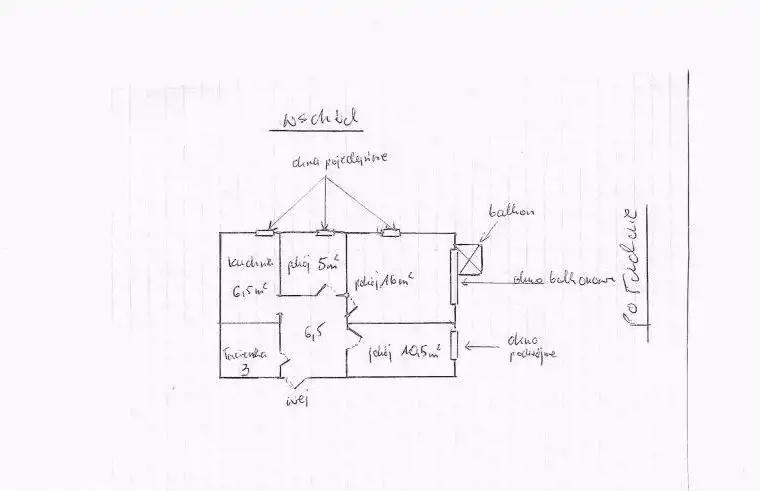 wschód
okna pojedyńcze
balkon
kuchnia
6,5 m²
pokój 5 m²
pokój 16 m²
okno balkonowe
południe
6,5
łazienka
3
pokój 10,5 m²
okno
podwójne
wej